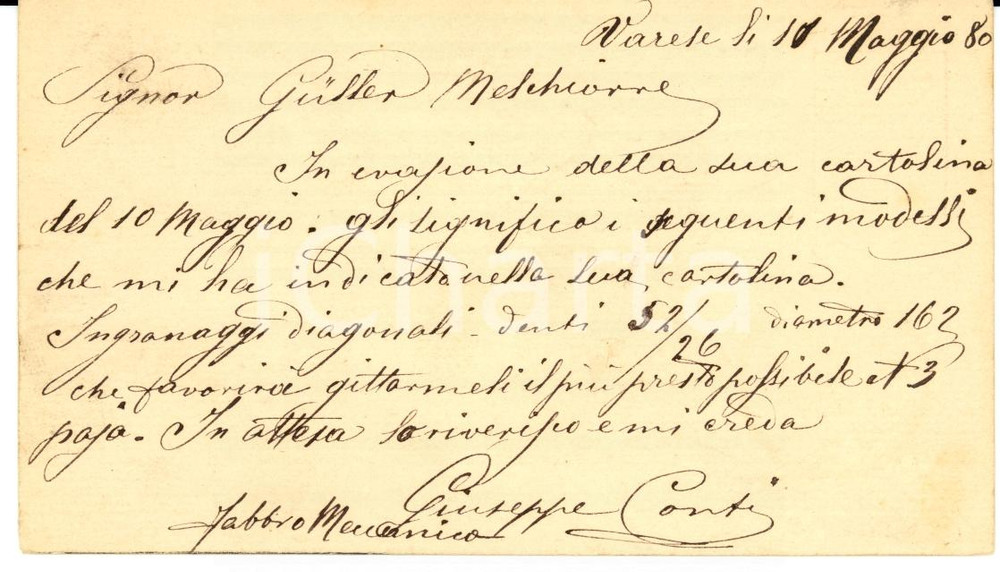 Varese li 11 Maggio 80
Signor Güller Melchiorre
In evasione della sua cartolina
del 10 Maggio. gli significo i seguenti modelli
che mi ha indicato nella sua cartolina.
Ingranaggi diagonali - denti 52/26 diametro 162
che favorirà gittarmeli il più presto possibile N 3
paja. In attesa lo riverisco e mi creda
Giuseppe Conti
Fabbro Meccanico
iCharta